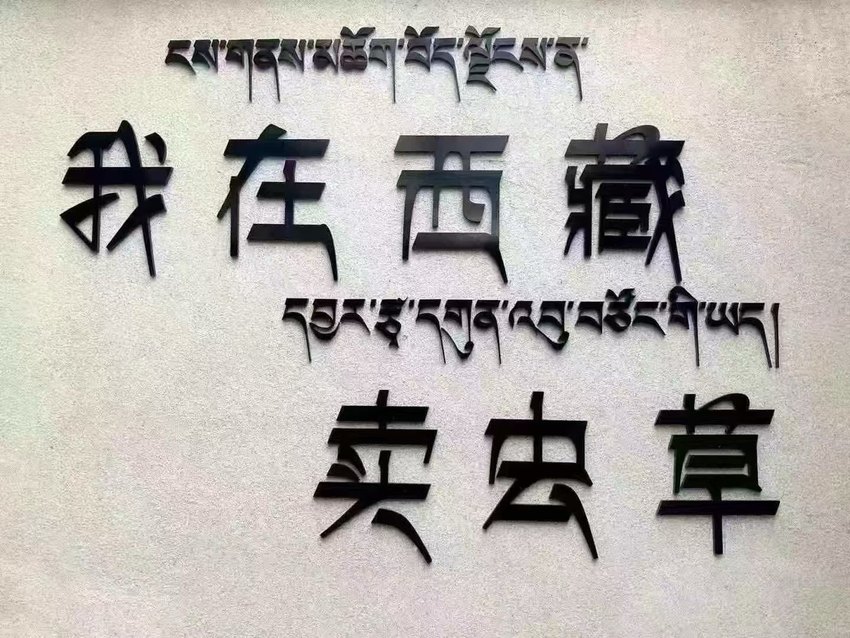 ངས་གནས་མཆོག་བོད་ལྗོངས་ན་
我在西藏
དབྱར་རྩྭ་དགུན་འབུ་བཙོང་གི་ཡད།
卖虫草